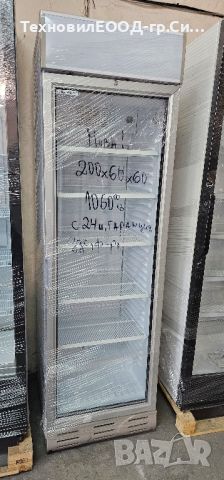 ТехновилЕООД-гр.Си...
Нова
200x60x60
1060лв
с 24м. гаранция
bazar